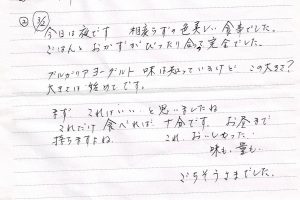 ② 3/2
今日は夜です 相変らずの色美しい食事でした。
ごはんとおかずがぴったり合って完全でした。
ブルガリアヨーグルト 味は知っているけど この大きさ?
大きさは始めてです。
まず これはいい と思いましたね
これだけ食べれば 十分です。お昼まで
持ちますよね。 これ おいしかった
味も、量も、
ごちそうさまでした。